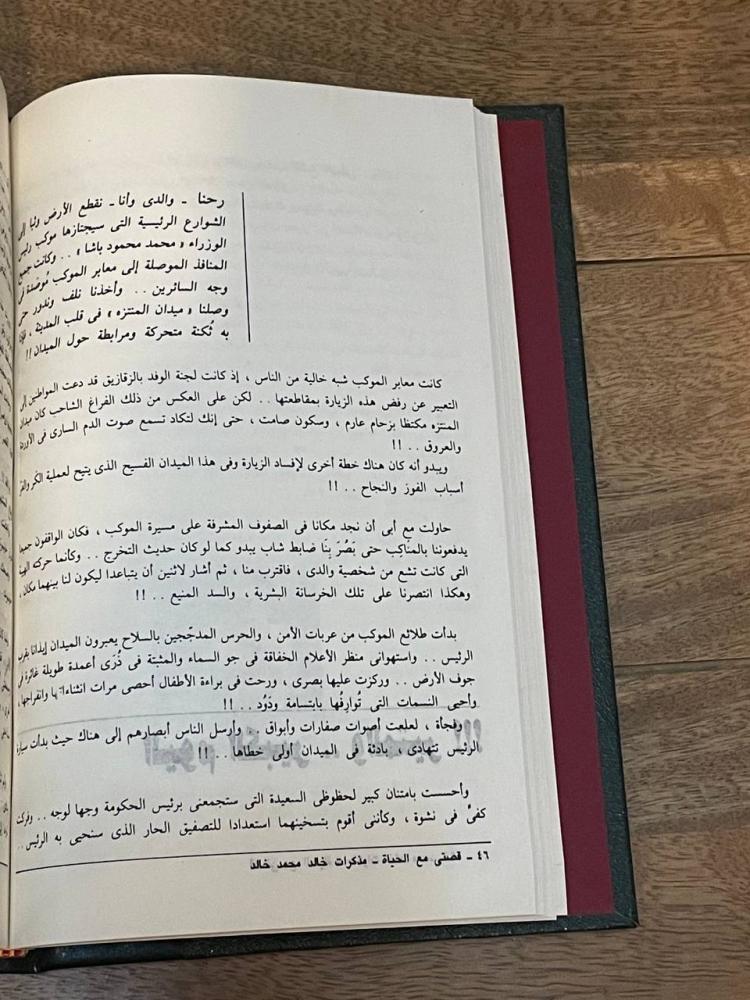 رحنا - والدى وأنا - نقطع الأرض وثبا إلى
الشوارع الرئيسية التى سيجتازها موكب رئيس
الوزراء « محمد محمود باشا » .. وكانت جميع
المنافذ الموصلة إلى معابر الموكب مُوصَدة فى
وجه السائرين .. وأخذنا نلف وندور حتى
وصلنا « ميدان المنتزه » فى قلب المدينة ، فإذا
به ثُكنة متحركة ومرابطة حول الميدان !!
كانت معابر الموكب شبه خالية من الناس ، إذ كانت لجنة الوفد بالزقازيق قد دعت المواطنين إلى
التعبير عن رفض هذه الزيارة بمقاطعتها .. لكن على العكس من ذلك الفراغ الشاحب كان ميدان
المنتزه مكتظا بزحام عارم ، وسكون صامت ، حتى إنك لتكاد تسمع صوت الدم السارى فى الأوردة
والعروق .. !!
ويبدو أنه كان هناك خطة أخرى لإفساد الزيارة وفى هذا الميدان الفسيح الذى يتيح لعملية الكَر والفر
أسباب الفوز والنجاح .. !!
حاولت مع أبى أن نجد مكانا فى الصفوف المشرفة على مسيرة الموكب ، فكان الواقفون جميعا
يدفعوننا بالمناكِب حتى بَصُرَ بِنَا ضابط شاب يبدو كما لو كان حديث التخرج .. وكأنما حركته الهيبة
التى كانت تشع من شخصية والدى ، فاقترب منا ، ثم أشار لاثنين أن يتباعدا ليكون لنا بينهما مكان ،
وهكذا انتصرنا على تلك الخرسانة البشرية ، والسد المنيع .. !!
بدأت طلائع الموكب من عربات الأمن ، والحرس المدجّجين بالسلاح يعبرون الميدان إيذانا بقرب
الرئيس .. واستهوانى منظر الأعلام الخفاقة فى جو السماء والمثبتة فى ذُرَى أعمدة طويلة غائرة فى
جوف الأرض .. وركزت عليها بصرى ، ورحت فى براءة الأطفال أحصى مرات انثناءاتها وانفراجها ،
وأحيى النسمات التى تُوارفُها بابتسامة ودَوُد .. !!
وفجأة ، لعلعت أصوات صفارات وأبواق .. وأرسل الناس أبصارهم إلى هناك حيث بدأت سيارة
الرئيس تتهادى ، بادئة فى الميدان أولى خطاها .. !!
وأحسست بامتنان كبير لحظوظى السعيدة التى ستجمعنى برئيس الحكومة وجها لوجه .. وفركت
كفىَّ فى نشوة ، وكأننى أقوم بتسخينهما استعدادا للتصفيق الحار الذى سنحيى به الرئيس ..
٤٦ - قصتى مع الحياة - مذكرات خالد محمد خالد